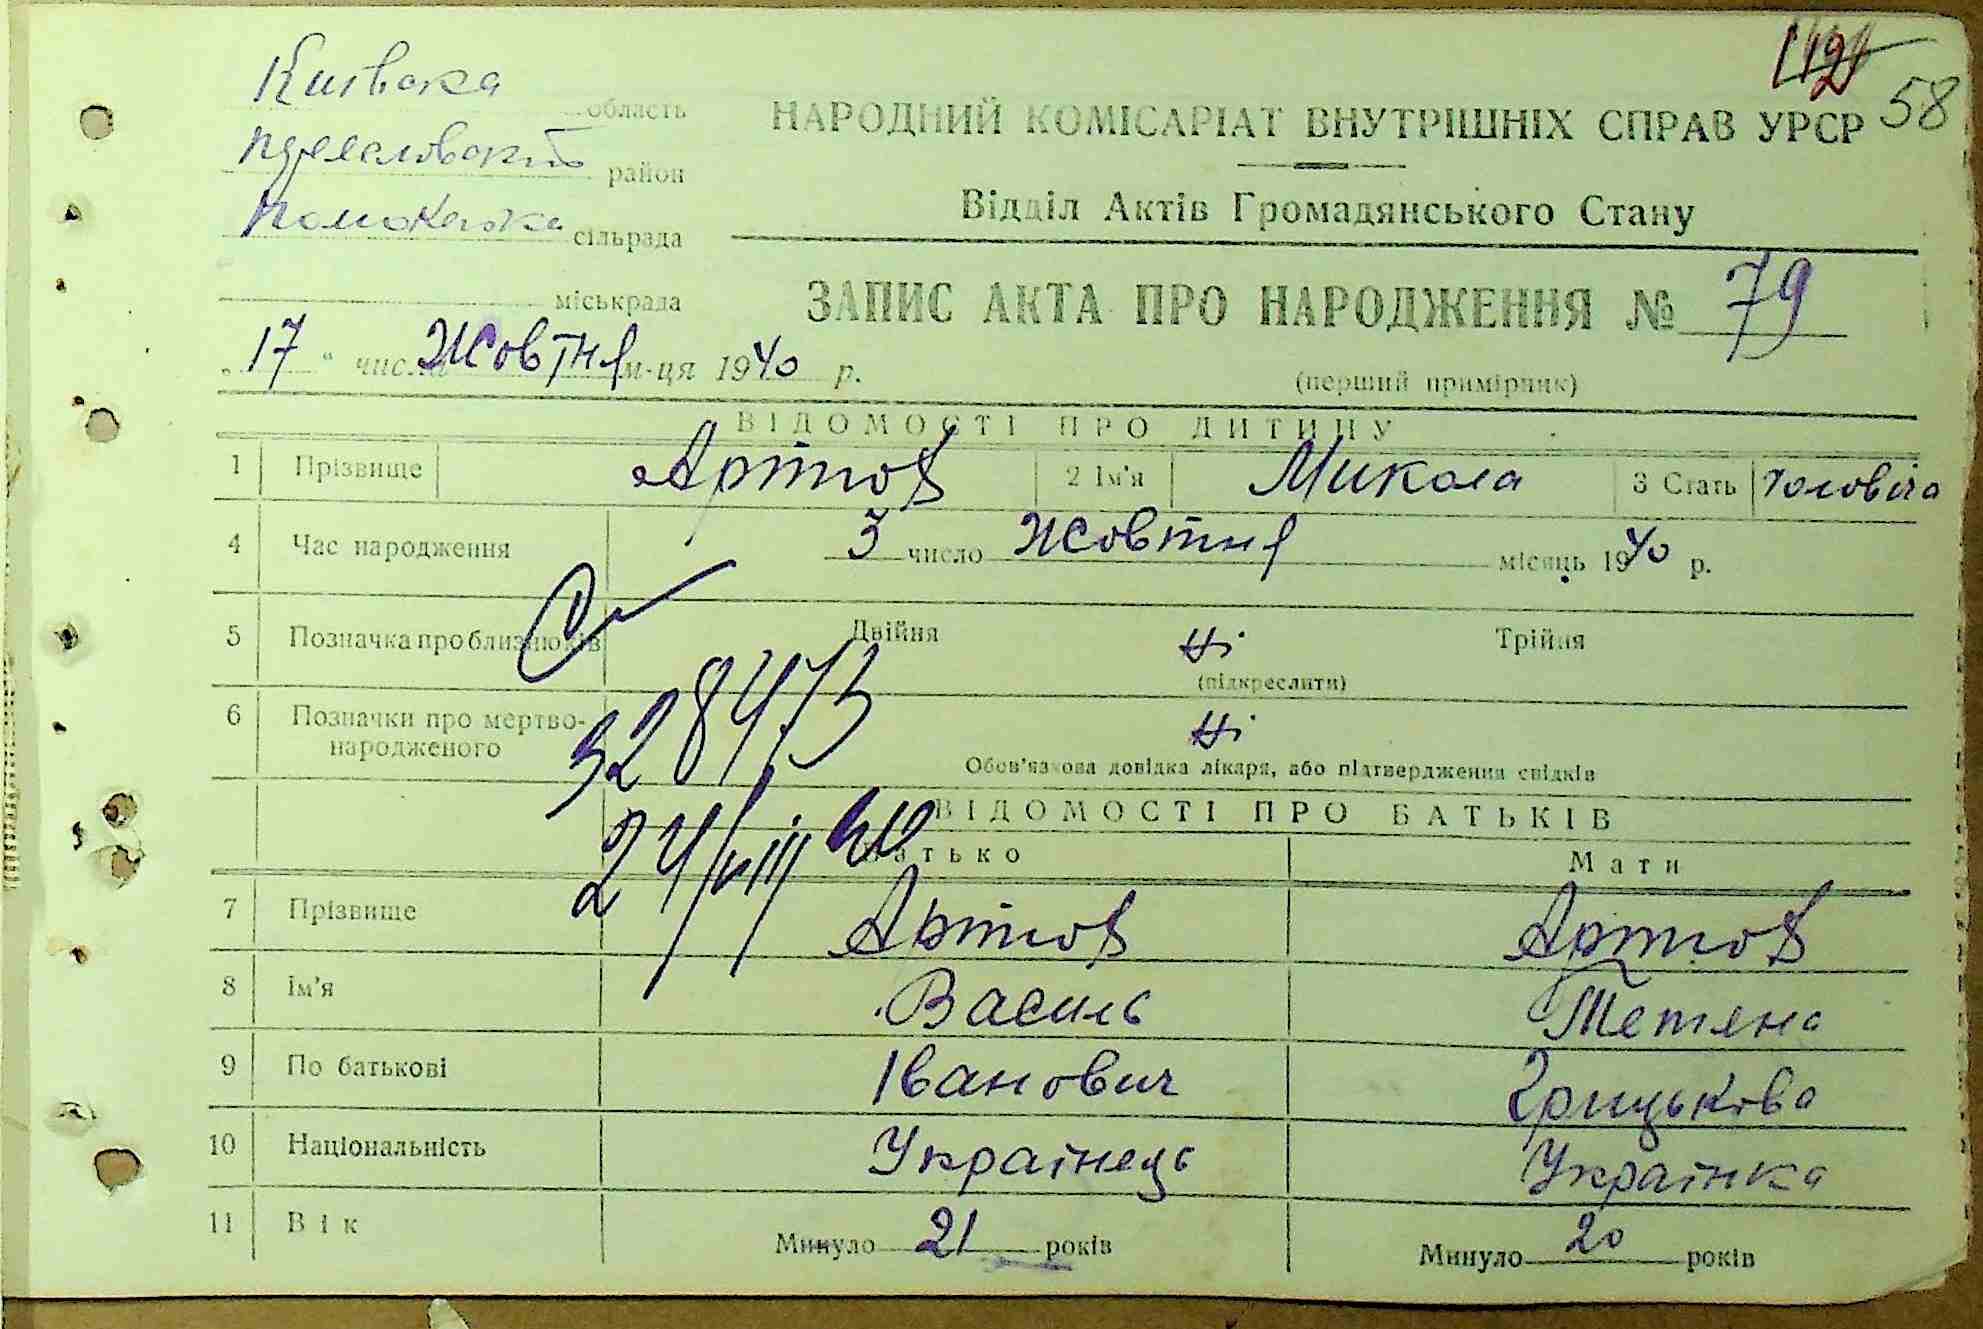 112
58
Київська область
район
сільрада
міськрада
НАРОДНИЙ КОМІСАРІАТ ВНУТРІШНІХ СПРАВ УРСР
Відділ Актів Громадянського Стану
ЗАПИС АКТА ПРО НАРОДЖЕННЯ № 79
„17“ числа Жовтня м-ця 1940 р.
(перший примірник)
ВІДОМОСТІ ПРО ДИТИНУ
1 Прізвище 2 Ім'я Микола 3 Стать чоловіча
4 Час народження 3 число Жовтня місяць 1940 р.
5 Позначка про близнюків Двійня Ні Трійня
(підкреслити)
6 Позначки про мертво-
народженого Ні
Обов'язкова довідка лікаря, або підтвердження свідків
328473
24/VIII 40
ВІДОМОСТІ ПРО БАТЬКІВ
Батько Мати
7 Прізвище
8 Ім'я Василь Тетяна
9 По батькові Іванович Грицькова
10 Національність Українець Українка
11 Вік Минуло 21 років Минуло 20 років